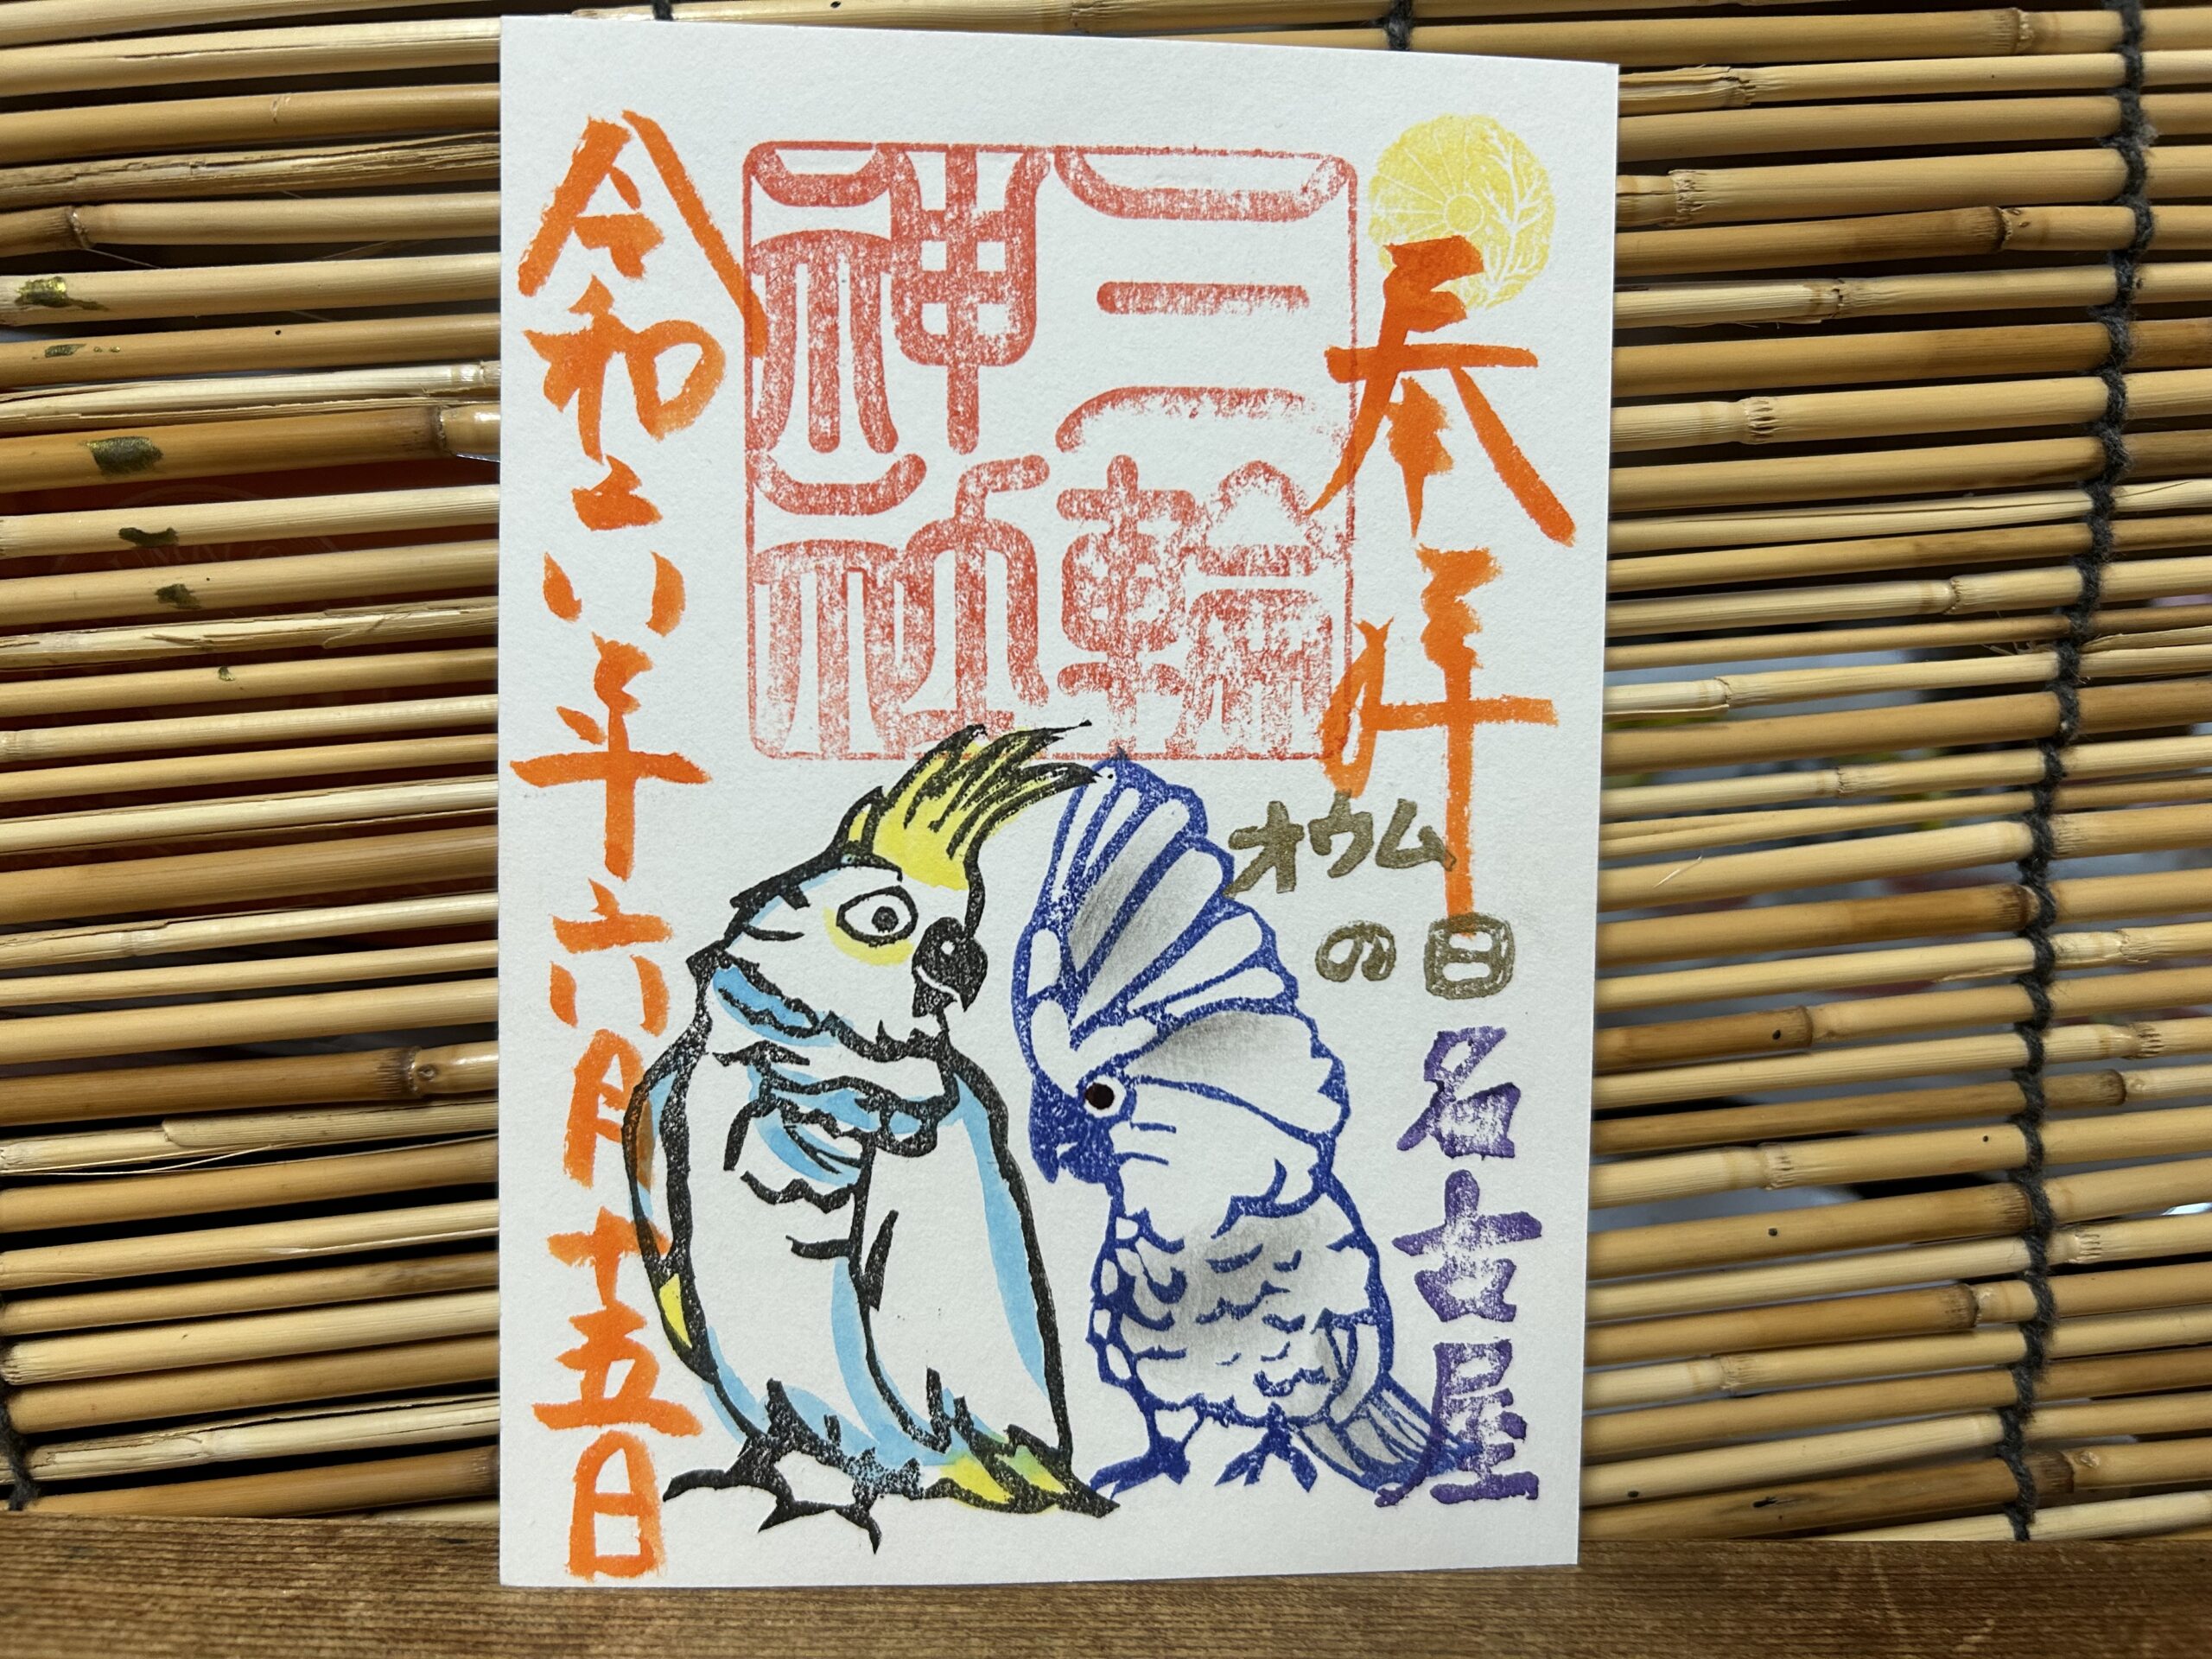 奉拝
オウム
の日
名古屋
三輪
神社
令和六年六月十五日